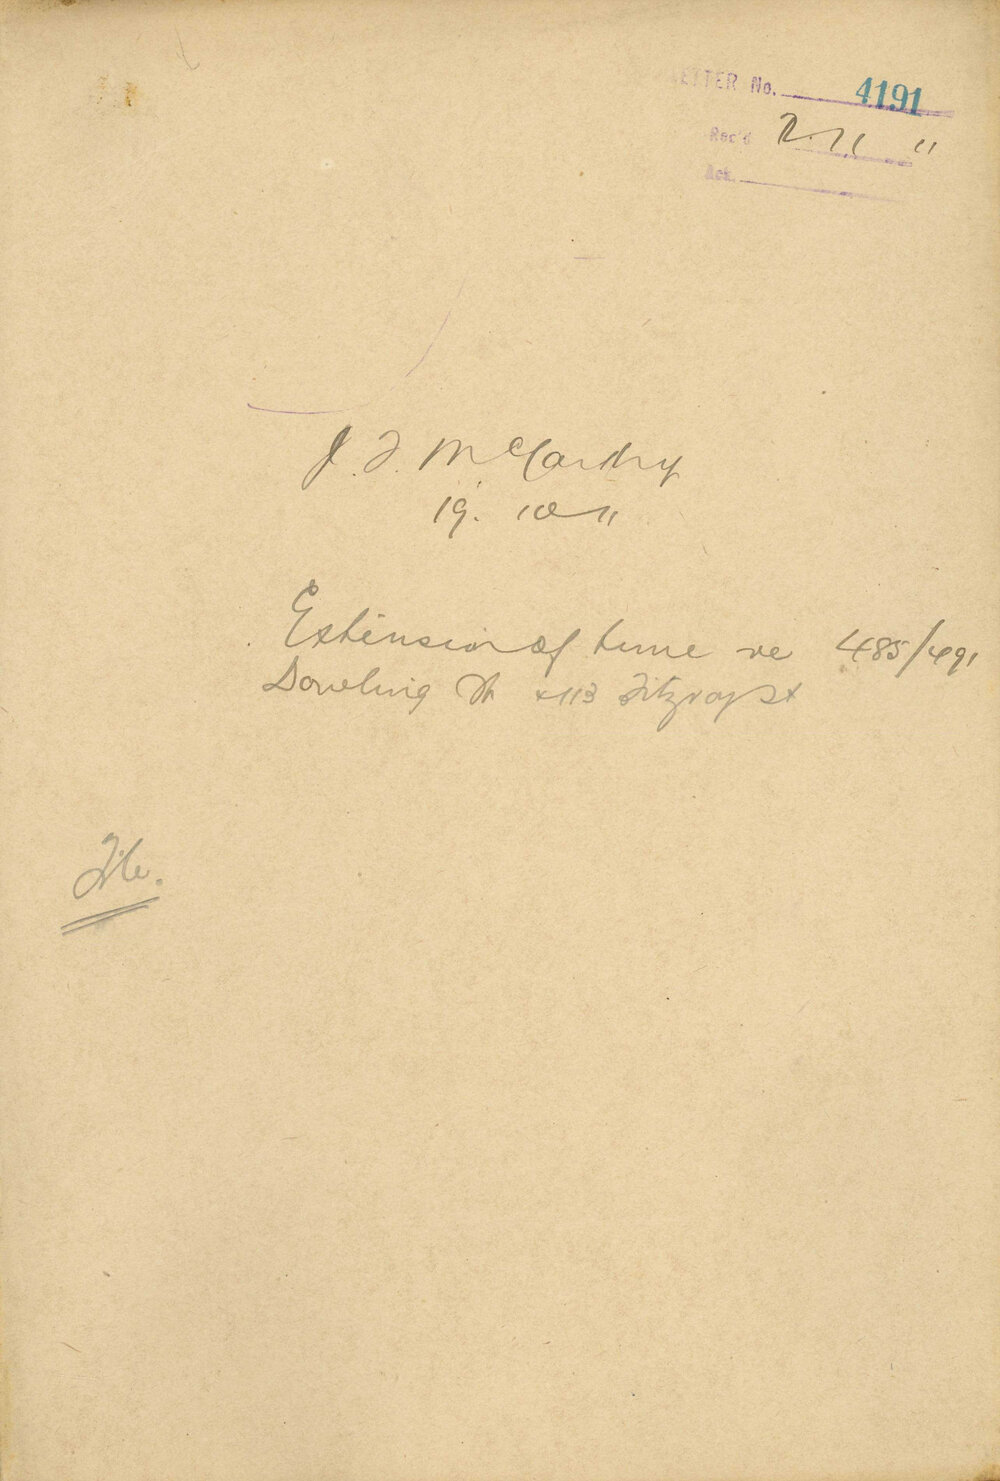 LETTER No. 4191
Rec'd 2.11 11
Ack.
J. F. McCarthy
19. 10 11
Extension of time re 485/491
Dowling St & 113 Fitzroy St
File.